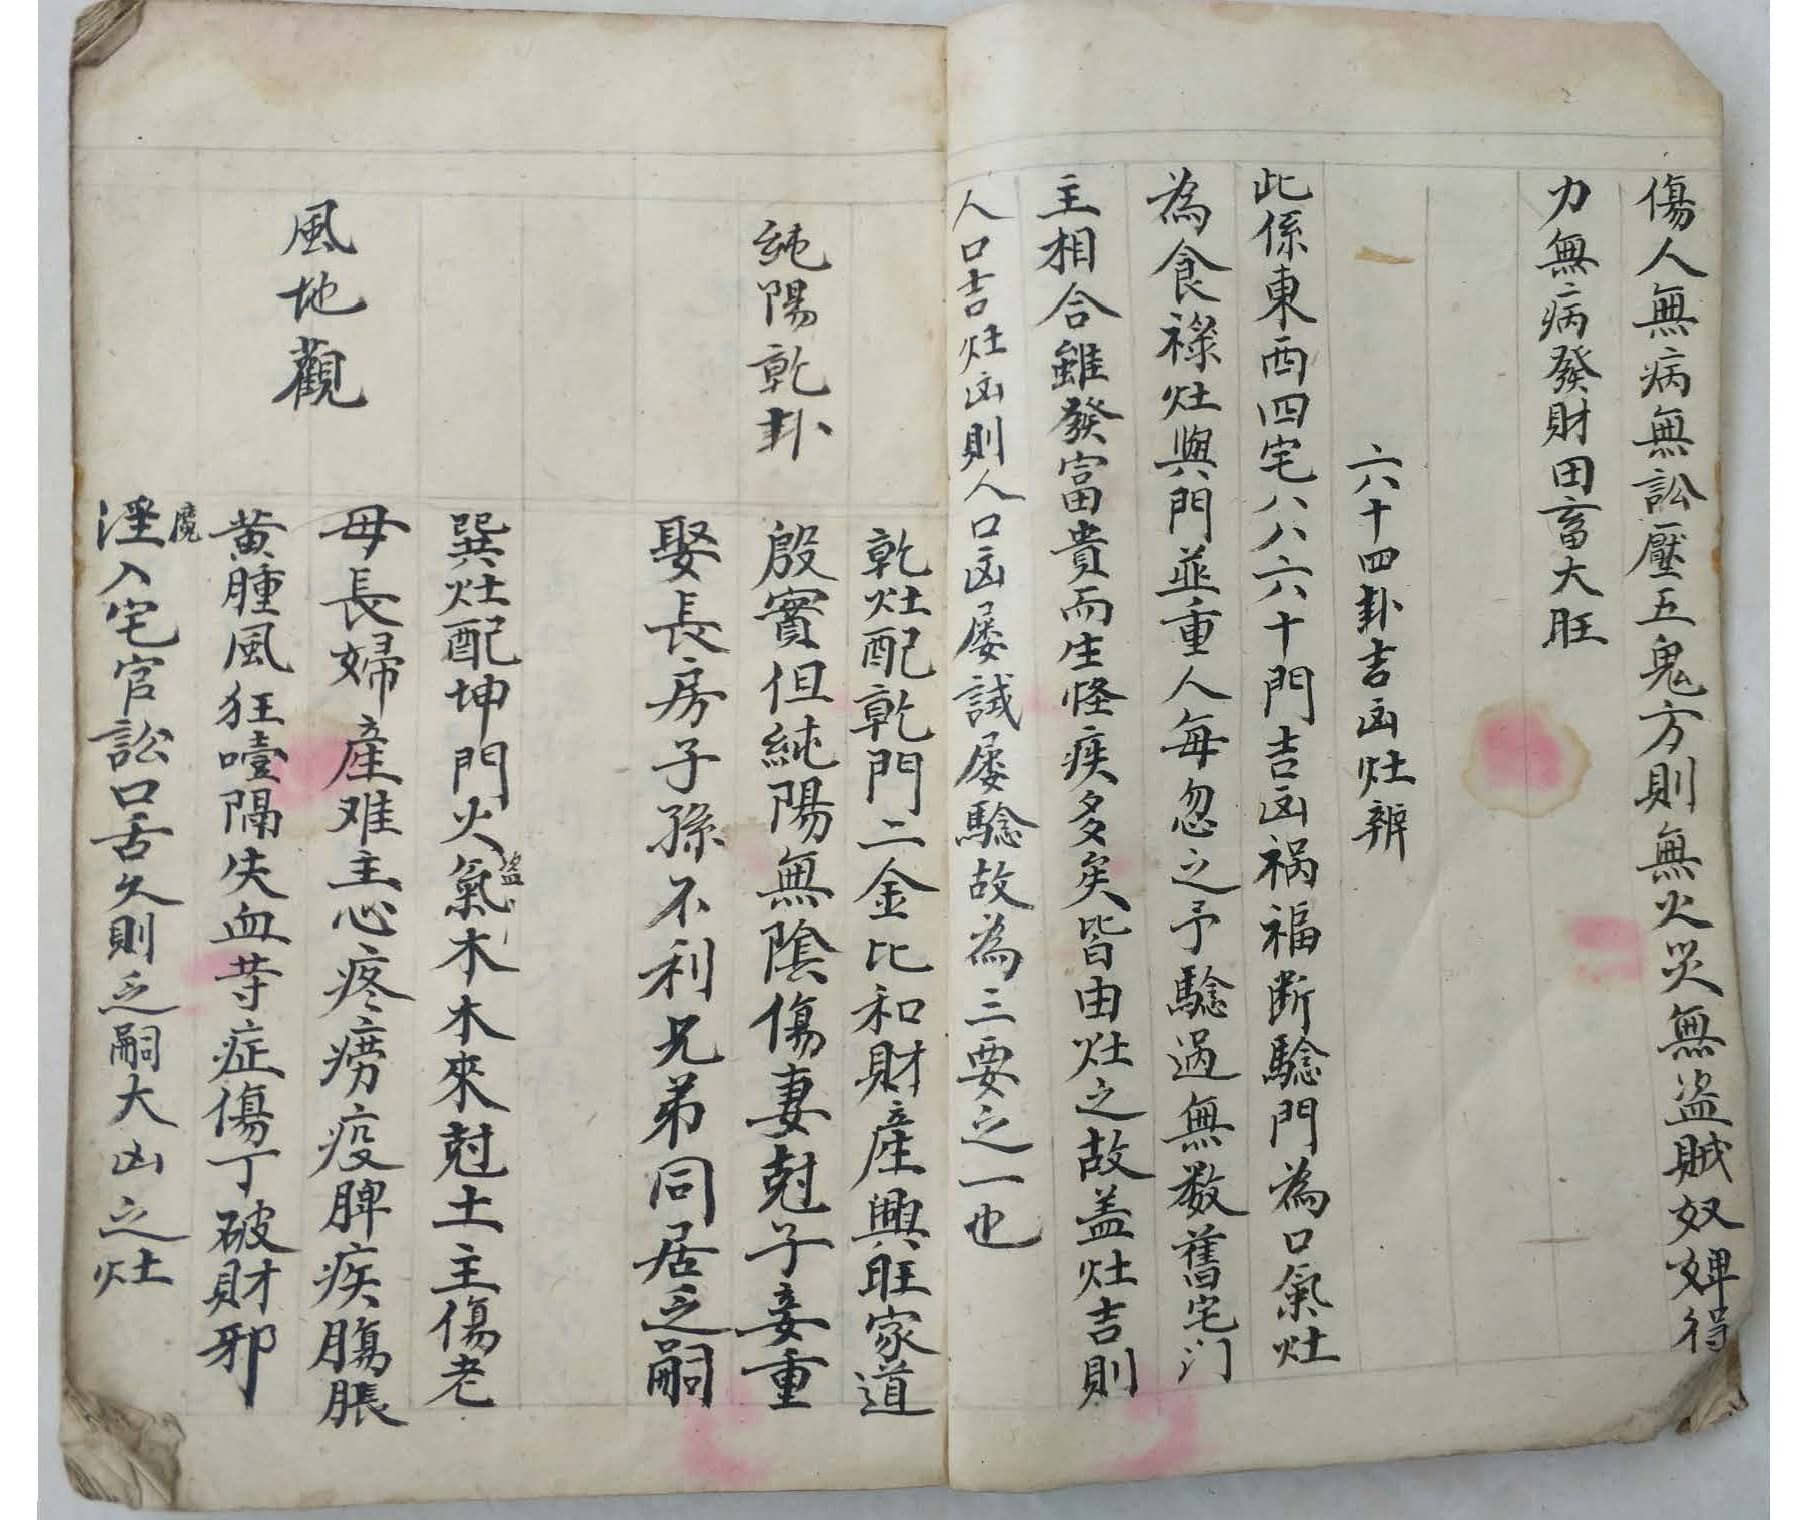 傷人無病無訟壓五鬼方則無火災無盗賊奴婢得
力無病發財田畜大旺
六十四卦吉凶灶辨
此係東西四宅八八六十門吉凶祸福断騐門為口氣灶
為食祿灶與門並重人每忽之予騐過無数舊宅门
主相合雖發富貴而生怪疾多矣皆由灶之故盖灶吉則
人口吉灶凶則人口凶屡試屡騐故為三要之一也
純陽乾卦
乾灶配乾門二金比和財產興旺家道
殷實但純陽無陰傷妻尅子妾重
娶長房子孫不利兄弟同居乏嗣
風地觀
巽灶配坤門火氣盗木木來尅土主傷老
母長婦產难主心疼痨疫脾疾膓脹
黄腫風狂噎隔失血荨症傷丁破財邪
魔
淫入宅官訟口舌久則乏嗣大凶之灶